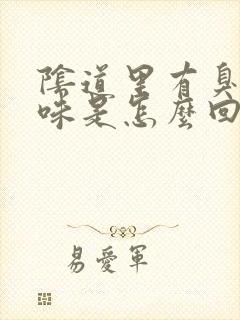 陰道里有臭
味是怎麼回
易愛軍